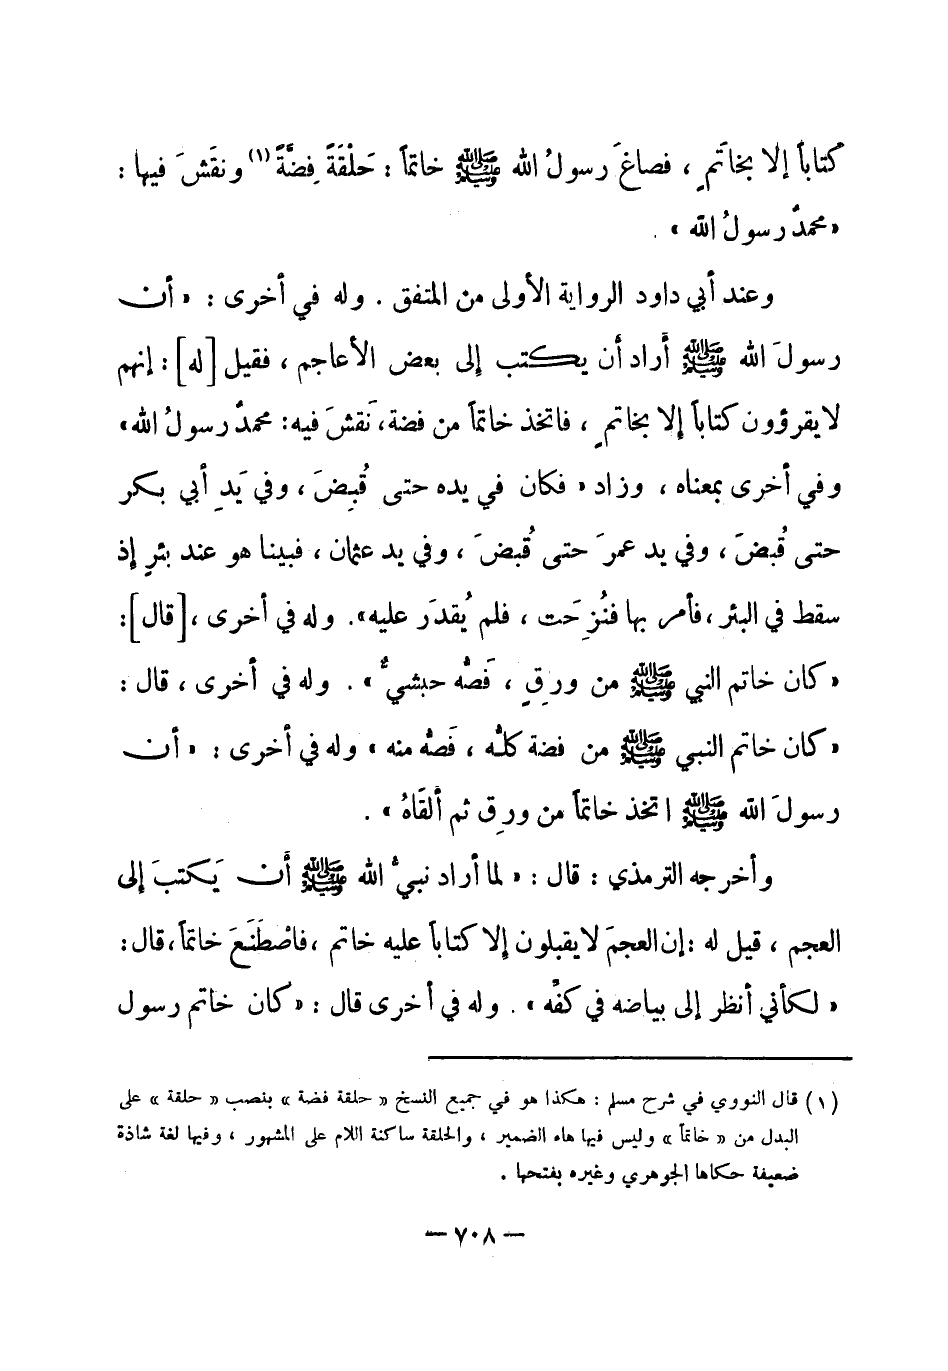 كتاباً إلا بخاتَمٍ ، فصاغَ رسولُ الله ﷺ خاتماً : حَلْقَةً فِضَّةً (١) ونقَشَ فيها :
« محمدٌ رسولُ الله » .
وعند أبي داود الرواية الأولى من المتفق . وله في أخرى : « أن
رسولَ الله ﷺ أراد أن يكتب إلى بعض الأعاجم ، فقيل [له] : إنهم
لا يقرؤون كتاباً إلا بخاتمٍ ، فاتخذ خاتماً من فضة، نَقشَ فيه: محمدٌ رسولُ الله»
وفي أخرى بمعناه ، وزاد « فكان في يده حتى قُبِضَ ، وفي يَدِ أبي بكر
حتى قُبضَ ، وفي يد عمرَ حتى قُبضَ ، وفي يد عثمان ، فبينا هو عند بئرٍ إذ
سقط في البئر ، فأمر بها فنُزِحَت ، فلم يُقدَر عليه». وله في أخرى ، [قال]:
« كان خاتم النبي ﷺ من ورِقٍ ، فَصُّه حبشيٌّ » . وله في أخرى ، قال :
« كان خاتم النبي ﷺ من فضة كلُّه ، فَصُّه منه » وله في أخرى : « أن
رسولَ الله ﷺ اتخذ خاتماً من ورِق ثم ألقَاهُ » .
وأخرجه الترمذي : قال : « لما أراد نبيُّ الله ﷺ أن يَكتبَ إلى
العجم ، قيل له : إن العجمَ لا يقبلون إلا كتاباً عليه خاتم ، فاصْطَنَعَ خاتماً، قال :
« لكأني أنظر إلى بياضه في كفِّه » . وله في أخرى قال : « كان خاتم رسول
(١) قال النووي في شرح مسلم : هكذا هو في جميع النسخ « حلقة فضة » بنصب « حلقة » على
البدل من « خاتماً » وليس فيها هاء الضمير ، والحلقة ساكنة اللام على المشهور ، وفيها لغة شاذة
ضعيفة حكاها الجوهري وغيره بفتحها .
— ٧٠٨ —